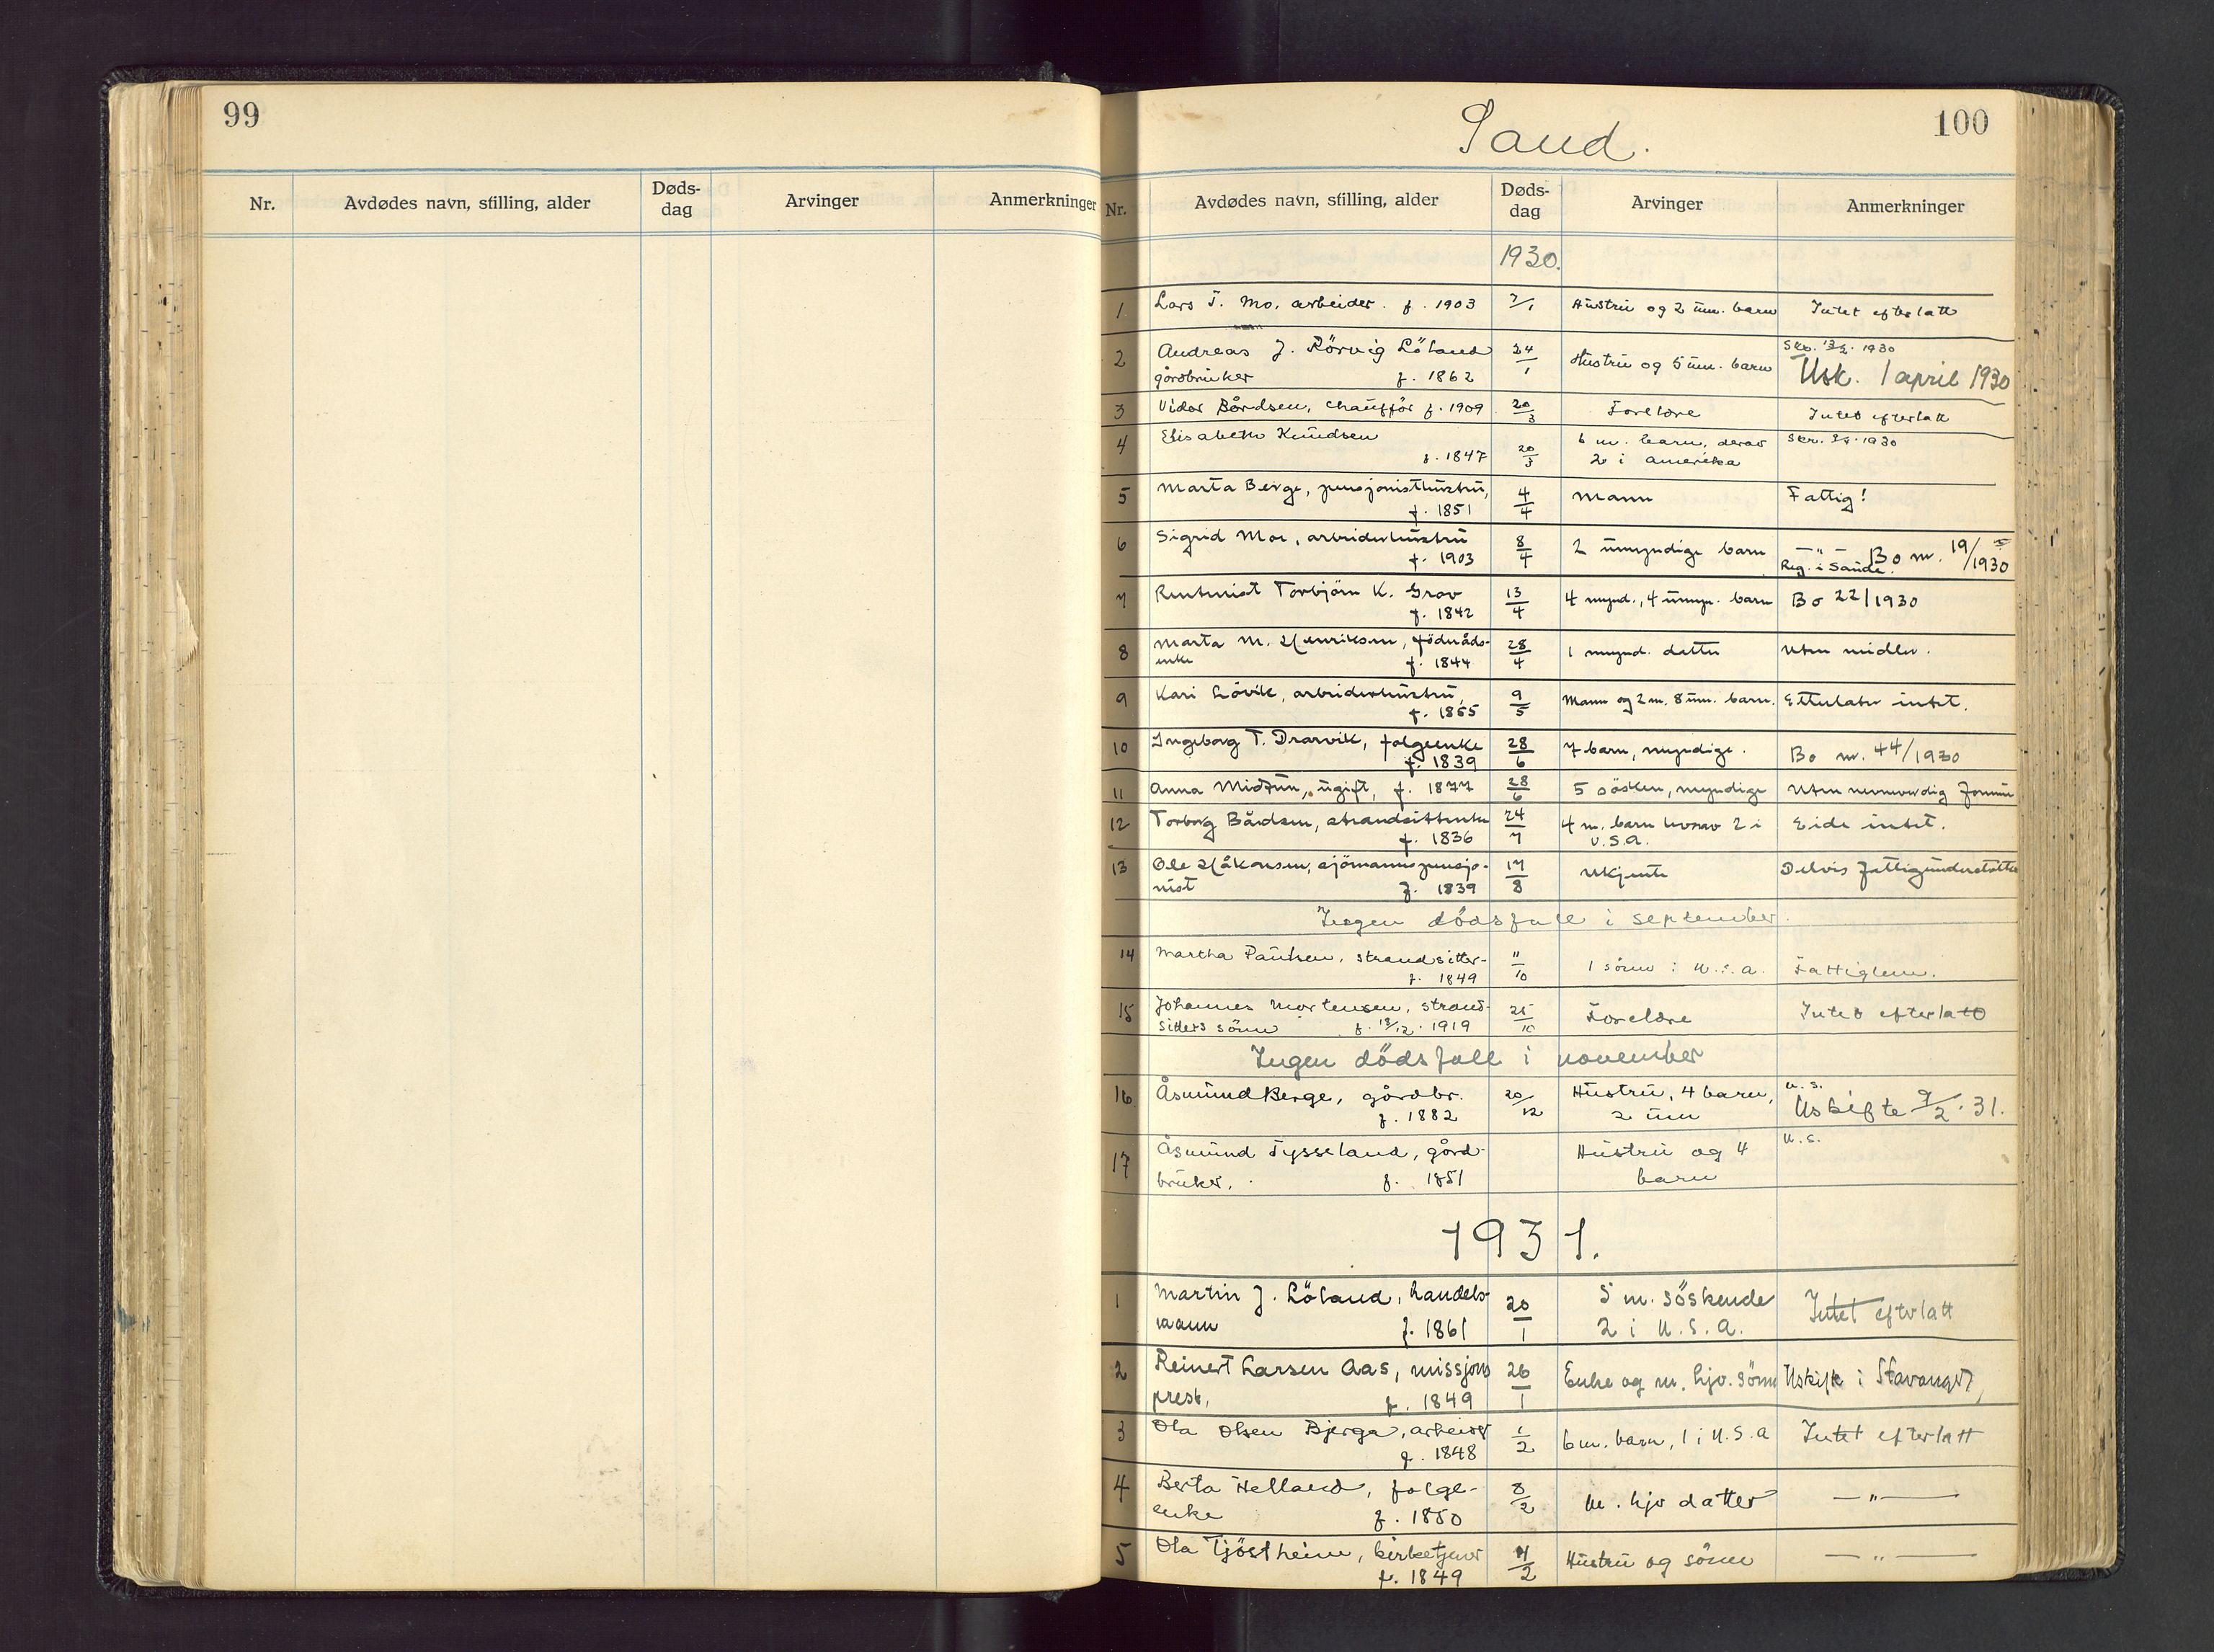 99
Nr. Avdødes navn, stilling, alder Døds-dag Arvinger Anmerkninger
Sand. 100
Nr. Avdødes navn, stilling, alder Døds-dag Arvinger Anmerkninger
1930.
1 Lars T. Mo, arbeider. f. 1903 7/1 Hustru og 2 um. barn Intet efterlatt
2 Andreas J. Rörvig Löland 24/1 Hustru og 5 um. barn Skr. 13/2. 1930
gårdbruker f. 1862 Usk. 1 april 1930
3 Vidar Bårdsen, chaufför f. 1909 20/3 Foreldre Intet efterlatt
4 Elisabeth Knudsen 6 m. barn, derav
f. 1847 20/3 2 i Amerika 1930
5 Marta Berge, pensjonisthustru, 4/4 Mann Fattig!
f. 1851
6 Sigrid Moe, arbeiderhustru 8/4 2 umyndige barn — " — Bo nr. 19/1930
f. 1903 Reg. i Sauda.
7 Torbjörn K. Grov 13/4 4 mynd., 4 umyn. barn Bo 22/1930
f. 1842
8 Marta M. Henriksen, föderåds- 28/4 1 mynd. datter Uten midler.
enke f. 1844
9 Kari Lövik, arbeiderhustru, 9/5 Mann og 2 m. 8 um. barn. Etterlater intet.
f. 1865
10 Ingeborg T. Drarvik, folgeenke 28/6 7 barn, myndige. Bo nr. 44/1930
f. 1839
11 Anna Midtun, ugift, f. 1877 28/6 5 sösken, myndige Uten nevneverdig formue
12 Torborg Bårdsen, 24/7 4 m. barn hvorav 2 i Eide intet.
f. 1836 U.S.A.
13 Ole Håkonsen, sjömannspensjo- 17/8 Ukjente Delvis fattigunderstøttet
nist f. 1839
Ingen dödsfall i september.
14 Martha Paulsen, strandsitter- 11/10 1 sönn i U.S.A. Fattiglem.
f. 1849
15 Johannes Mortensen, strand- 25/10 Foreldre Intet efterlatt
sitters sönn f. 18/12. 1919
Ingen dödsfall i november
16 Åsmund Berge, gårdbr. 20/12 Hustru, 4 barn, U.S.
f. 1882 2 um Uskifte 9/2. 31.
17 Åsmund Tysseland, gård- Hustru og 4 U.S.
bruker. f. 1851 barn
1931.
1 Martin J. Löland, handels- 20/1 5 m. söskende Intet efterlatt
mann f. 1861 2 i U.S.A.
2 Reinert Larsen Aas, missjons 26/1 Enke og m. hjv. sönn Uskifte i Stavanger
prest, f. 1849
3 Ola Olsen Bjerga, arbeider 1/2 6 m. barn, 1 i U.S.A Intet efterlatt
f. 1848
4 Berta Helland, folge- 8/2 m. hjv datter — " —
enke f. 1850
5 Ola Tjöstheim, kirketjener 4/2 Hustru og sönn — " —
f. 1849